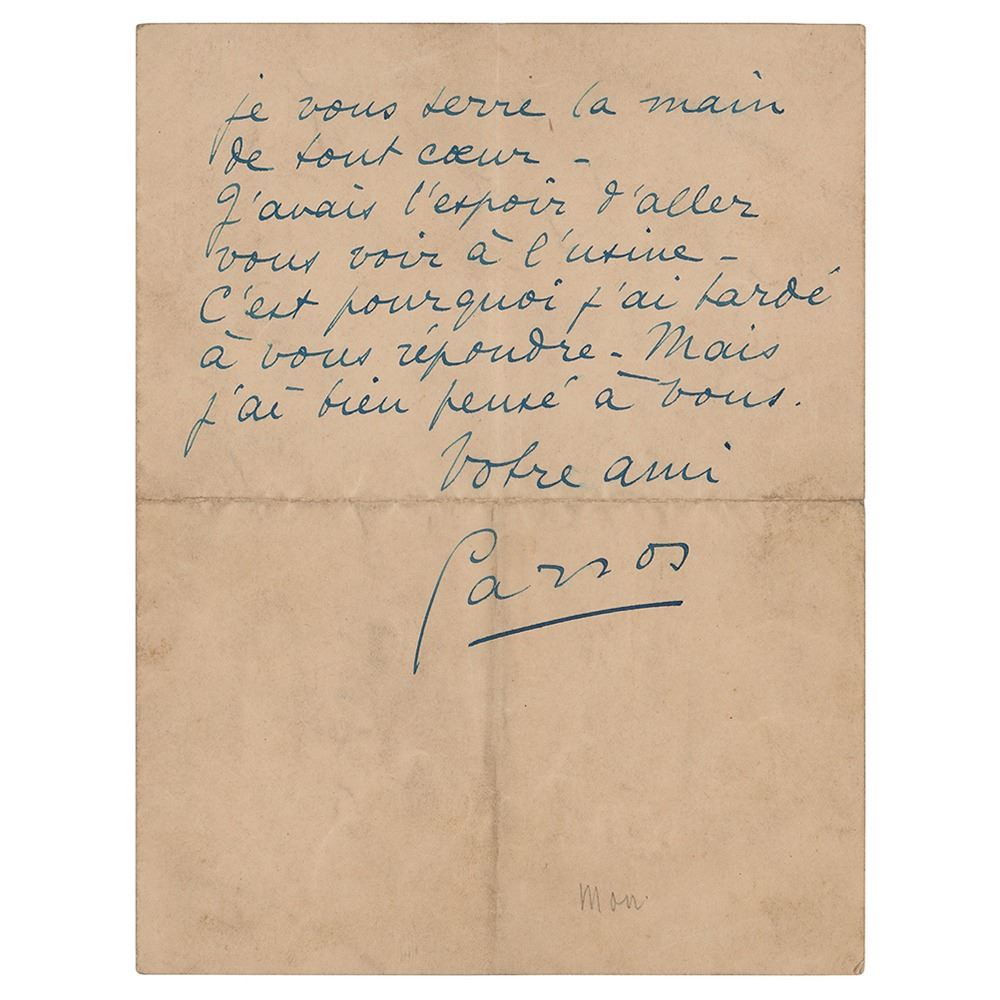 je vous serre la main
de tout cœur -
J'avais l'espoir d'aller
vous voir à l'usine -
C'est pourquoi j'ai tardé
à vous répondre - Mais
j'ai bien pensé à vous.
Votre ami
Garros
Mon